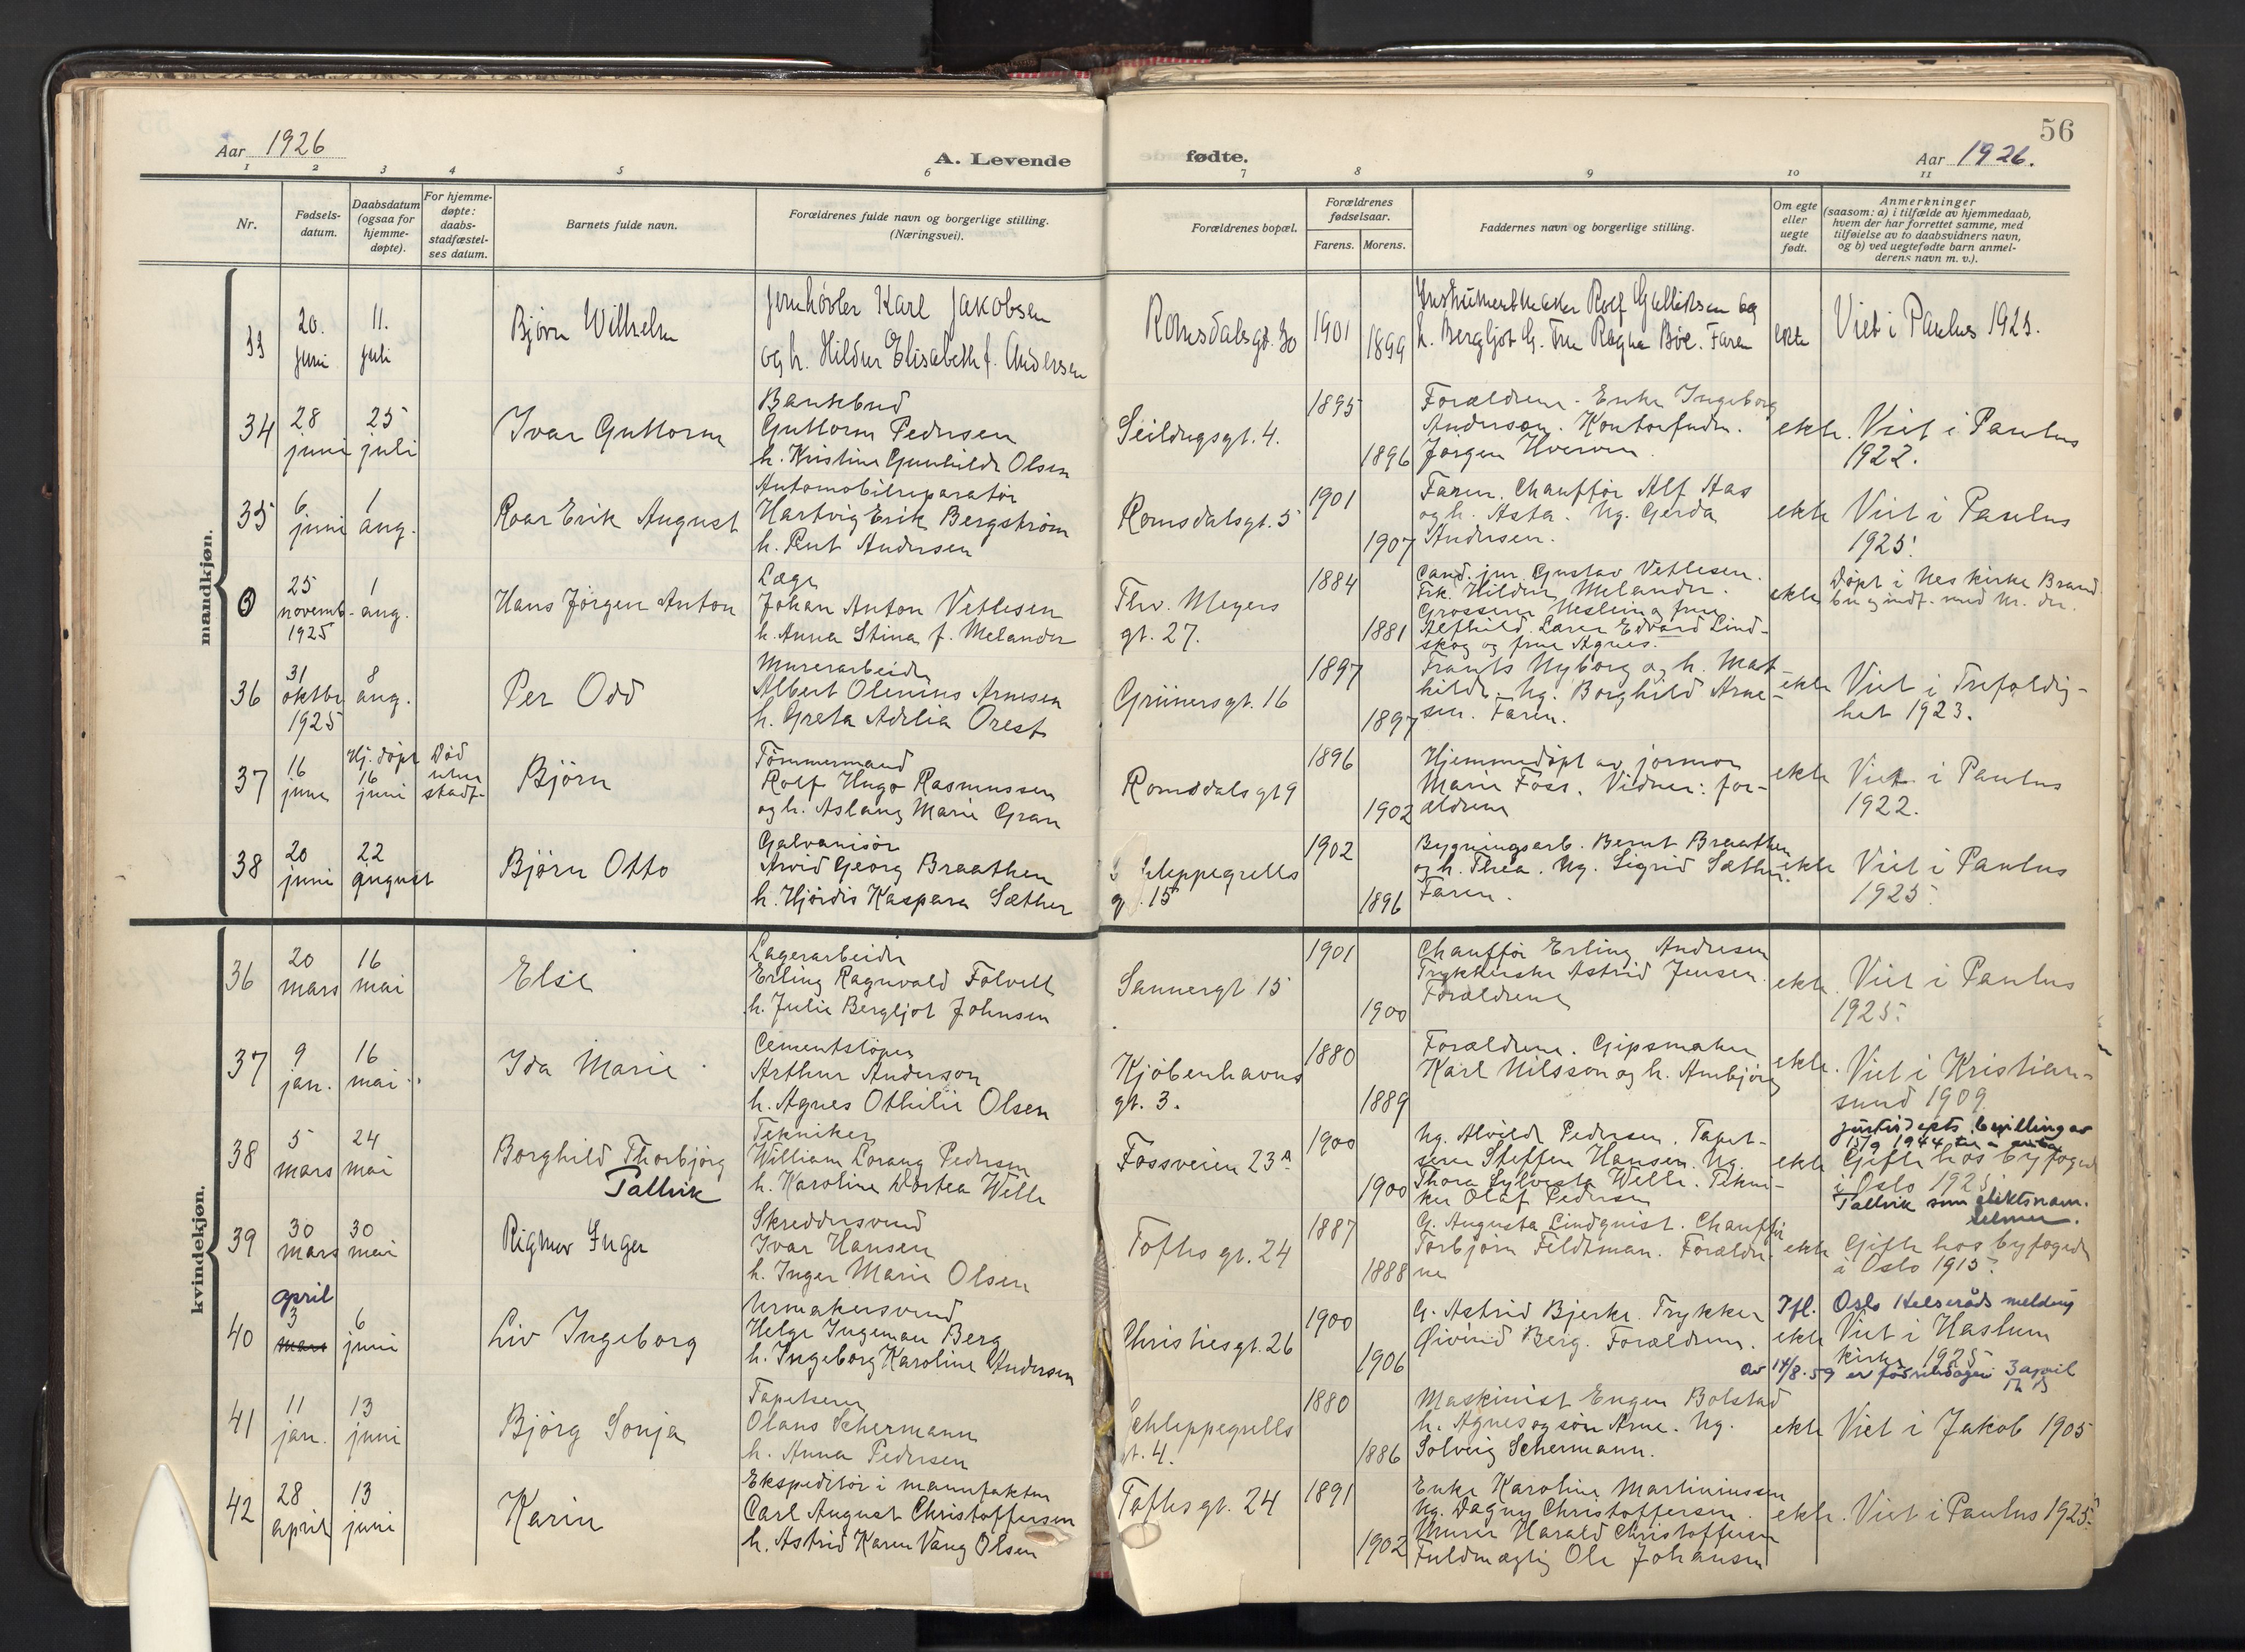 56
Aar 1926
A. Levende
fødte.
Aar 1926.
1 2 3 4 5 6 7 8 9 10 11
Nr.
Fødsels-
datum.
Daabsdatum
(ogsaa for
hjemme-
døpte).
For hjemme-
døpte:
daabs-
stadfæstel-
ses datum.
Barnets fulde navn.
Forældrenes fulde navn og borgerlige stilling.
(Næringsvei).
Forældrenes bopæl.
Forældrenes
fødselsaar.
Farens. Morens.
Faddernes navn og borgerlige stilling.
Om egte
eller
uegte
født.
Anmerkninger
(saasom: a) i tilfælde av hjemmedaab,
hvem der har forrettet samme, med
tilføielse av to daabsvidners navn,
og b) ved uegtefødte barn anmel-
derens navn m. v.).
mandkjøn.
33
20.
juni
11.
juli
Bjørn Wilhelm
Jernhøvler Karl Jakobsen
og h. Hildur Elisabeth f. Andersen
Romsdalsgt. 30
1901
1899
Instrumentmaker Rolf Gulliksen og
h. Bergljot G. Fru Ragna Bøe. Faren
ekte
Viet i Paulus 1925.
34
28
juni
25
juli
Ivar Guttorm
Bankbud
Guttorm Pedersen
h. Kristine Gunhilde Olsen
Seildugsgt. 4.
1895
1896
Forældrene. Enke Ingeborg
Anderson. Kontorfuldm.
Jørgen
ekte.
Viet i Paulus
1922.
35
6
juni
1
aug.
Roar Erik August
Automobilreparatør
Hartvig Erik Bergstrøm
h. Rut Andersen
Romsdalsgt. 5
1901
1907
Faren. Chauffør Alf Aas
og h. Asta. Ug. Gerda
Andersen.
ekte
Viet i Paulus
1925.
0
25
novemb.
1925
1
aug.
Hans Jørgen Anton
Læge
Johan Anton Vetlesen
h. Anna Stina f. Melander
Thv. Meyers
gt. 27.
1884
1881
Cand. jur. Gustav Vetlesen.
Frk. Hildur Melander.
Grosserer Nesheim og frue
Alfhild. Lærer Edvard Lind-
skog og frue Agnes.
ekte
Døpt i Nes kirke Brand
bu og indf. med Nr. der.
36
31
oktbr.
1925
8
aug.
Per Odd
Murerarbeider
Albert Olenius Arnesen
h. Greta Adelia Orest
Grünersgt. 16
1897
1897
Frants Nyborg og h. Mat-
hilde. Ug. Borghild Arne-
sen. Faren.
ekte
Viet i Trefoldig-
het 1923.
37
16
juni
Hj. døpt
16
juni
Død
uten
stadf.
Bjørn
Tømmermand
Rolf Hugo Rasmussen
og h. Aslaug Marie Gran
Romsdalsgt 9
1896
1902
Hjemmedøpt av jormor
Marie Foss. Vidner: for-
ældrene
ekte
Viet i Paulus
1922.
38
20
juni
22
august
Bjørn Otto
Galvanisør
Arvid Georg Braathen
h. Hjørdis Kaspara Sæther
Schleppegrells
gt. 15
1902
1896
Bygningsarb. Bernt Braathen
og h. Thea. Ug. Sigrid Sæther.
Faren.
ekte
Viet i Paulus
1925.
kvindekjøn.
36
20
mars
16
mai
Else
Lagerarbeider
Erling Ragnvald Følvell
h. Julie Bergljot Johnsen
Sannergt 15
1901
1900
Chauffør Erling Andresen
Trykkerske Astrid Jensen.
Forældrene
ekte.
Viet i Paulus
1925.
37
9
jan.
16
mai
Ida Marie
Cementstøper
Arthur Anderson
h. Agnes Othilie Olsen
Kjøbenhavns
gt. 3.
1880
1889
Forældrene. Gipsmaker
Karl Nilsson og h. Annbjørg
ekte.
Viet i Kristian-
sund 1909.
38
5
mars
24
mai
Borghild Thorbjørg
Tallvik
Tekniker
William Lorang Pedersen
h. Karoline Dortea Welle
Fossveien 23 a
1900
1900
Ug. Alvilde Pedersen. Tapet-
serer Steffen Hansen. Ug.
Thora Sylvesta Welle. Tekni-
ker Olaf Pedersen
ekte
justisdepts bevilling av
15/9 1944 til å anta
Gifte hos byfogden
i Oslo 1925.
Tallvik som slektsnavn.
39
30
mars
30
mai
Rigmor Inger
Skreddersvend
Ivar Hansen
h. Inger Marie Olsen
Toftes gt. 24
1887
1888
G. Augusta Lindquist. Chauffør
Torbjørn Feldtman. Forældre-
ne
ekte
Gifte hos byfogden
i Oslo 1915.
40
april
3
mars
6
juni
Liv Ingeborg
Urmakersvend
Helge Ingeman Berg
h. Ingeborg Karoline Andersen
Christiesgt. 26
1900
1906
G. Astrid Bjerke. Trykker
Øivind Berg. Forældrene.
ekte
Ifl. Oslo Helseråds melding
Viet i Haslum
kirke 1925
av 14/8.59 er fødselsdagen 3 april
41
11
jan.
13
juni
Bjørg Sonja
Tapetserer
Olaus Schermann
h. Anna Pedersen
Schleppegrells
gt. 4.
1880
1886
Maskinist Eugen Bolstad
h. Agnes og søn Arne. Ug.
Solveig Schermann.
ekte
Viet i Jakob 1905
42
28
april
13
juni
Karin
Ekspeditør i manufaktur
Carl August Christoffersen
h. Astrid Karen Vang Olsen
Toftes gt. 24
1891
1902
Enke Karoline Martiniussen
Ug. Dagny Christoffersen.
Murer Harald Christoffersen
Fuldmægtig Ole Johansen
ekte.
Viet i Paulus 1925.